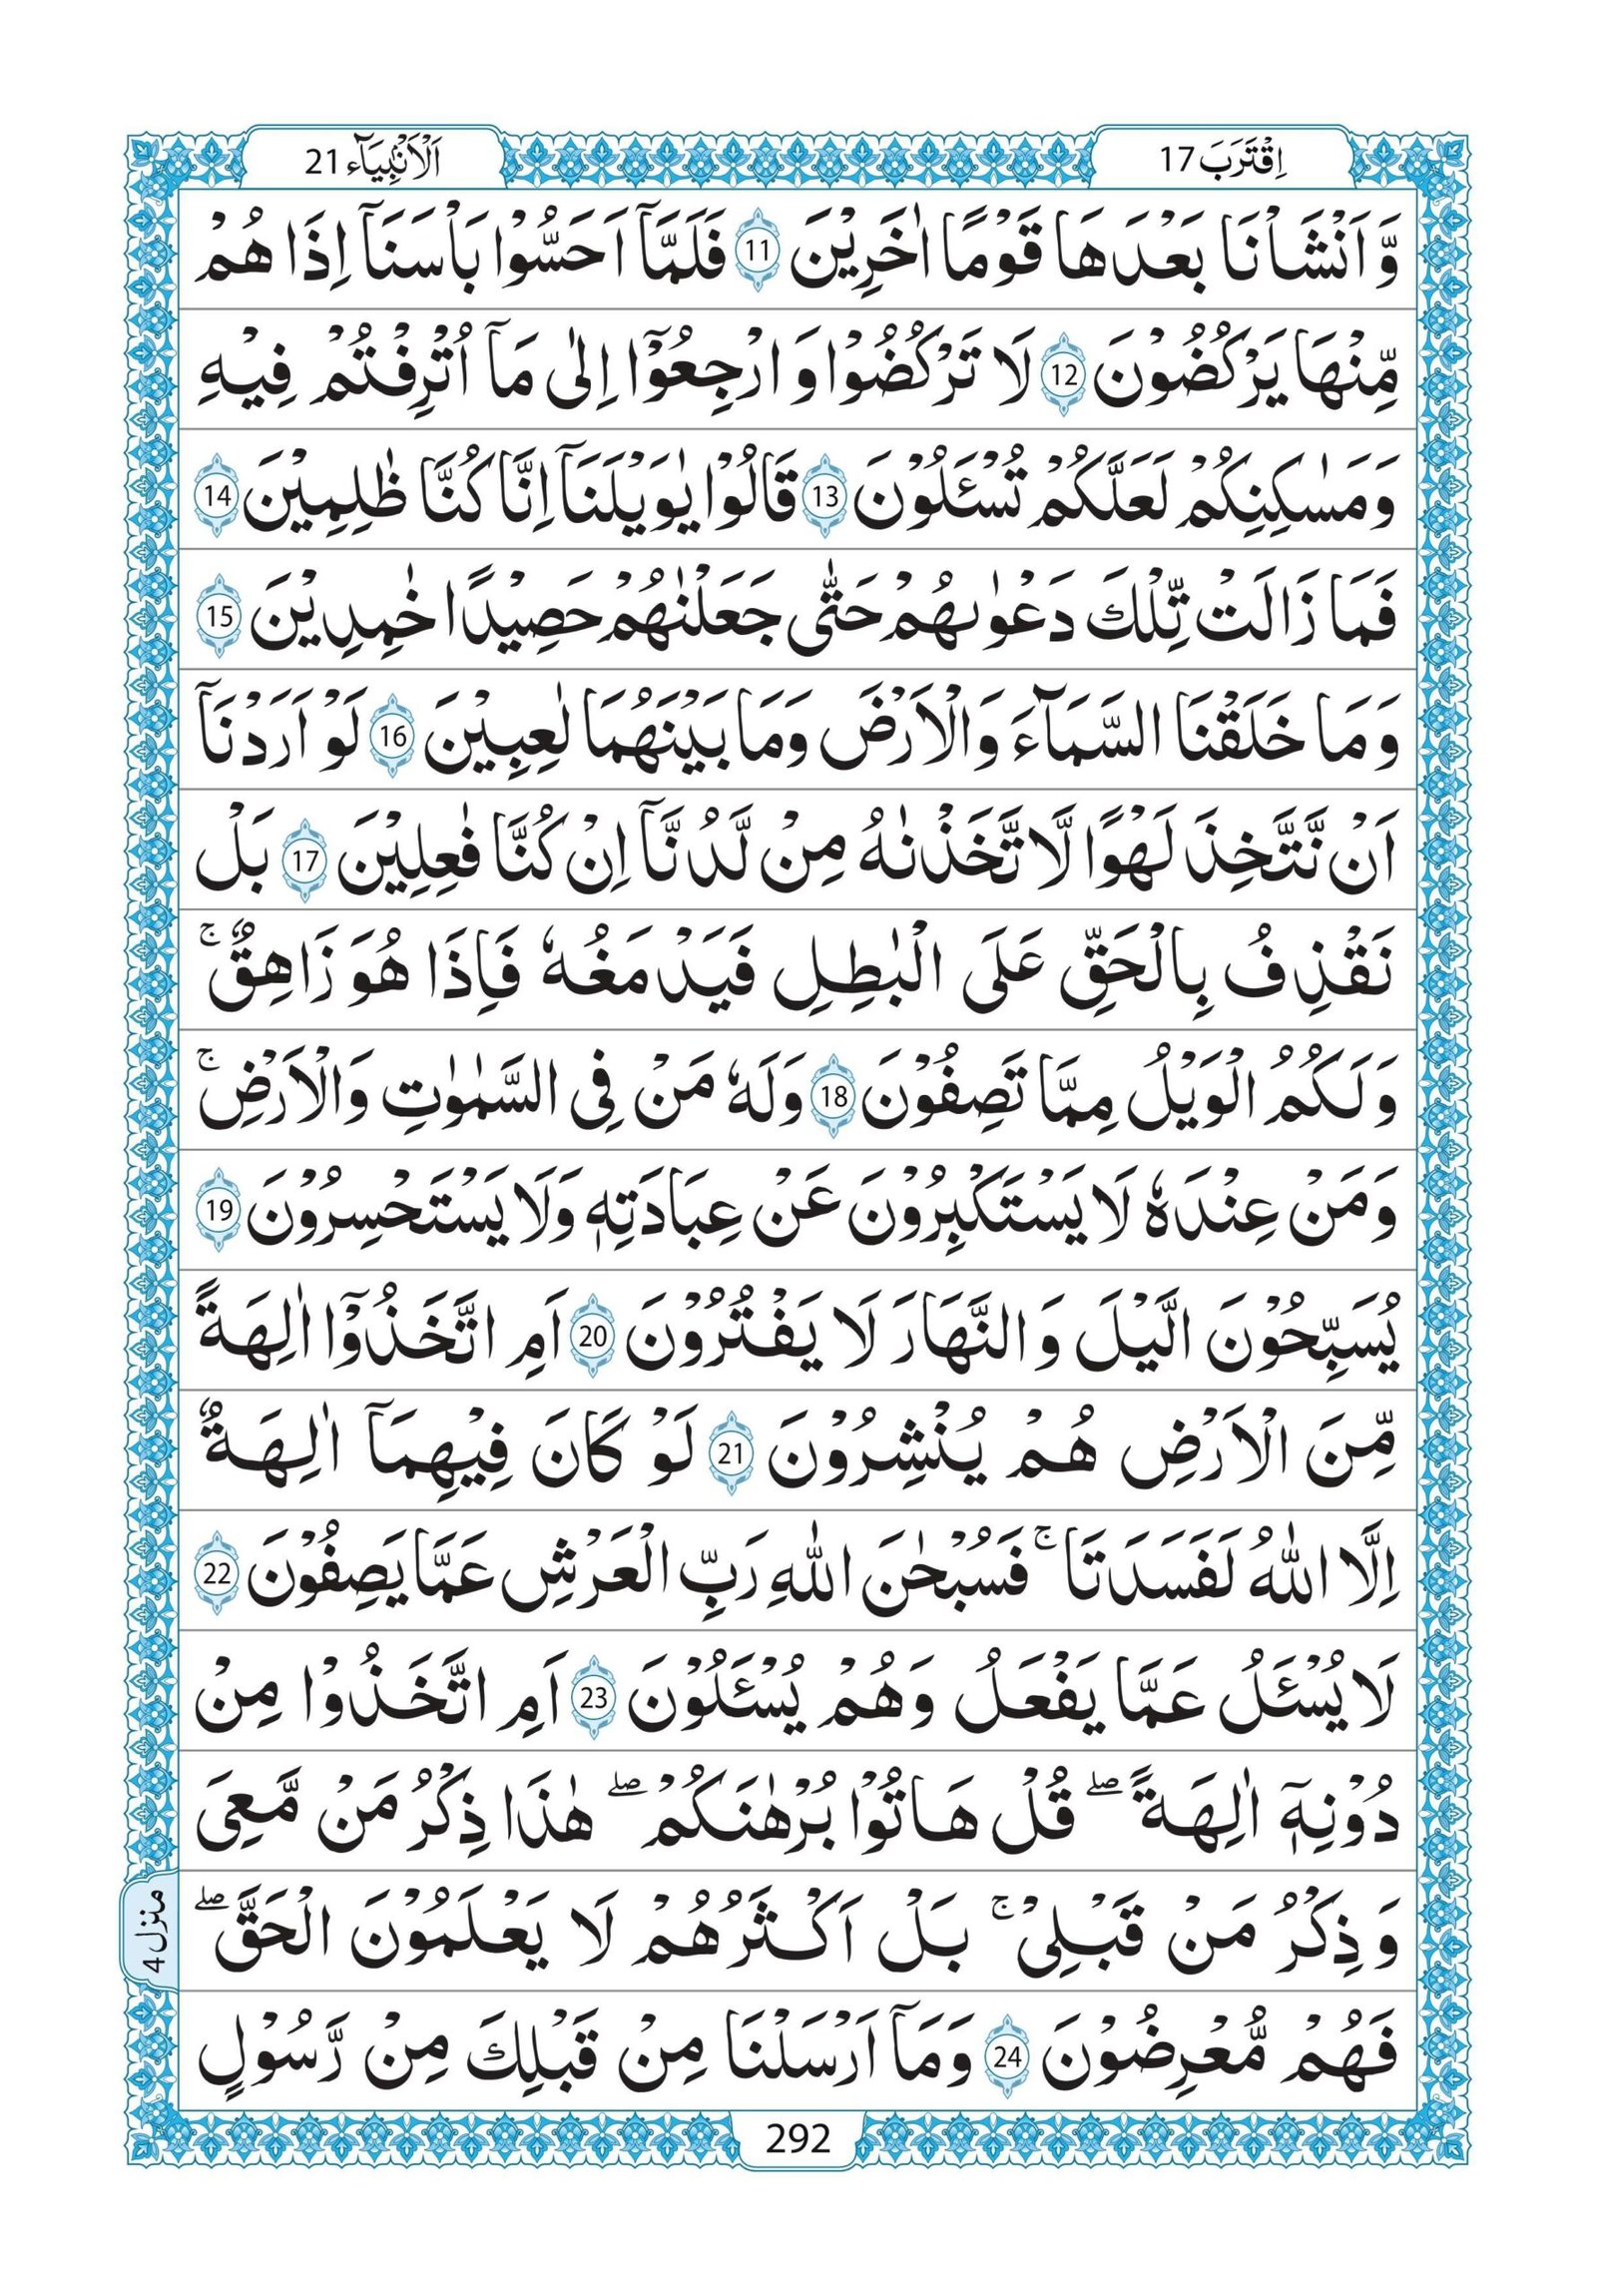 اِقْتَرَبَ 17
اَلْاَنْۢبِيَآء 21
وَّ اَنْشَاْنَا بَعْدَهَا قَوْمًا اٰخَرِيْنَ 11 فَلَمَّاۤ اَحَسُّوْا بَاْسَنَاۤ اِذَا هُمْ
مِّنْهَا يَرْكُضُوْنَ 12 لَا تَرْكُضُوْا وَ ارْجِعُوْۤا اِلٰى مَاۤ اُتْرِفْتُمْ فِيْهِ
وَ مَسٰكِنِكُمْ لَعَلَّكُمْ تُسْـَٔلُوْنَ 13 قَالُوْا يٰوَيْلَنَاۤ اِنَّا كُنَّا ظٰلِمِيْنَ 14
فَمَا زَالَتْ تِّلْكَ دَعْوٰىهُمْ حَتّٰى جَعَلْنٰهُمْ حَصِيْدًا خٰمِدِيْنَ 15
وَ مَا خَلَقْنَا السَّمَآءَ وَالْاَرْضَ وَمَا بَيْنَهُمَا لٰعِبِيْنَ 16 لَوْ اَرَدْنَاۤ
اَنْ نَّتَّخِذَ لَهْوًا لَّا تَّخَذْنٰهُ مِنْ لَّدُنَّاۤ اِنْ كُنَّا فٰعِلِيْنَ 17 بَلْ
نَقْذِفُ بِالْحَقِّ عَلَى الْبٰطِلِ فَيَدْمَغُهٗ فَاِذَا هُوَ زَاهِقٌ ۚ
وَ لَكُمُ الْوَيْلُ مِمَّا تَصِفُوْنَ 18 وَلَهٗ مَنْ فِى السَّمٰوٰتِ وَالْاَرْضِ ۚ
وَ مَنْ عِنْدَهٗ لَا يَسْتَكْبِرُوْنَ عَنْ عِبَادَتِهٖ وَلَا يَسْتَحْسِرُوْنَ 19
يُسَبِّحُوْنَ الَّيْلَ وَ النَّهَارَ لَا يَفْتُرُوْنَ 20 اَمِ اتَّخَذُوْۤا اٰلِهَةً
مِّنَ الْاَرْضِ هُمْ يُنْشِرُوْنَ 21 لَوْ كَانَ فِيْهِمَاۤ اٰلِهَةٌ
اِلَّا اللّٰهُ لَفَسَدَتَا ۚ فَسُبْحٰنَ اللّٰهِ رَبِّ الْعَرْشِ عَمَّا يَصِفُوْنَ 22
لَا يُسْـَٔلُ عَمَّا يَفْعَلُ وَهُمْ يُسْـَٔلُوْنَ 23 اَمِ اتَّخَذُوْا مِنْ
دُوْنِهٖۤ اٰلِهَةً ۖ قُلْ هَاتُوْا بُرْهٰنَكُمْ ۖ هٰذَا ذِكْرُ مَنْ مَّعِىَ
وَ ذِكْرُ مَنْ قَبْلِىْ ۚ بَلْ اَكْثَرُهُمْ لَا يَعْلَمُوْنَ الْحَقَّ ۖ
فَهُمْ مُّعْرِضُوْنَ 24 وَمَاۤ اَرْسَلْنَا مِنْ قَبْلِكَ مِنْ رَّسُوْلٍ
منزل 4
292